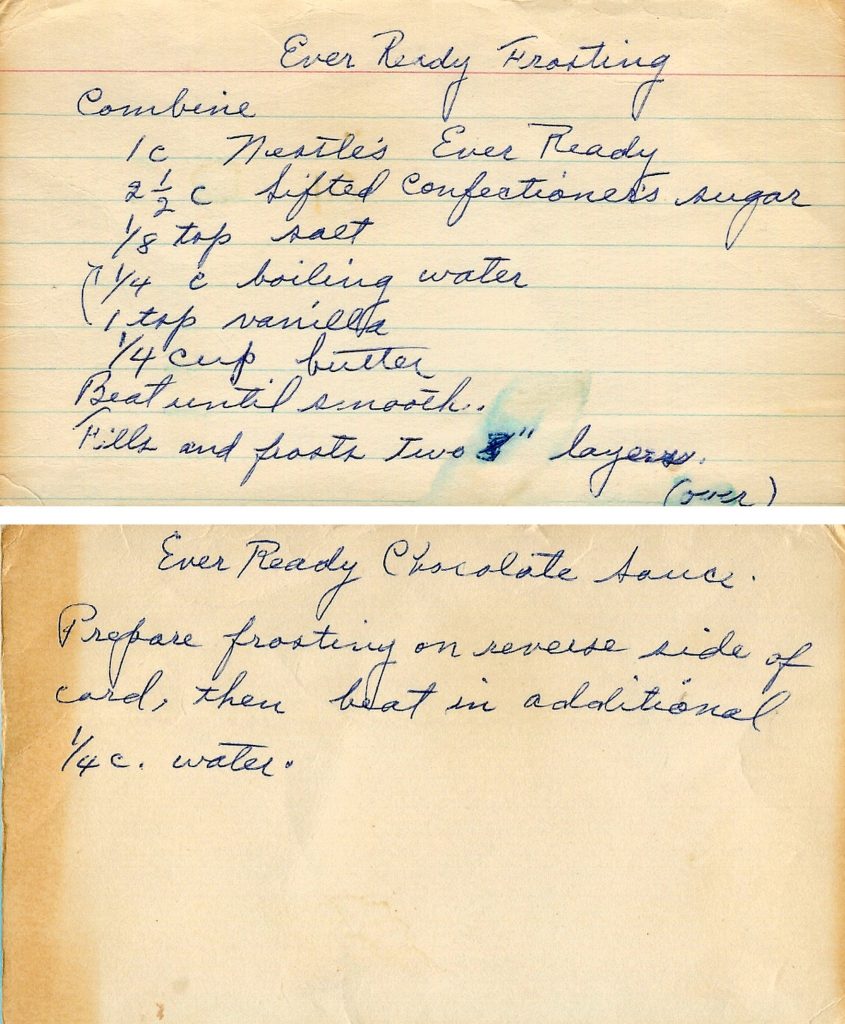 Ever Ready Frosting
Combine
1 c Nestle's Ever Ready
2 1/2 c Sifted Confectioner's sugar
1/8 tsp salt
1/4 c boiling water
1 tsp vanilla
1/4 cup butter
Beat until smooth.
Fills and frosts two " layers.
(over)
Ever Ready Chocolate Sauce.
Prepare frosting on reverse side of
card, then beat in additional
1/4 c. water.